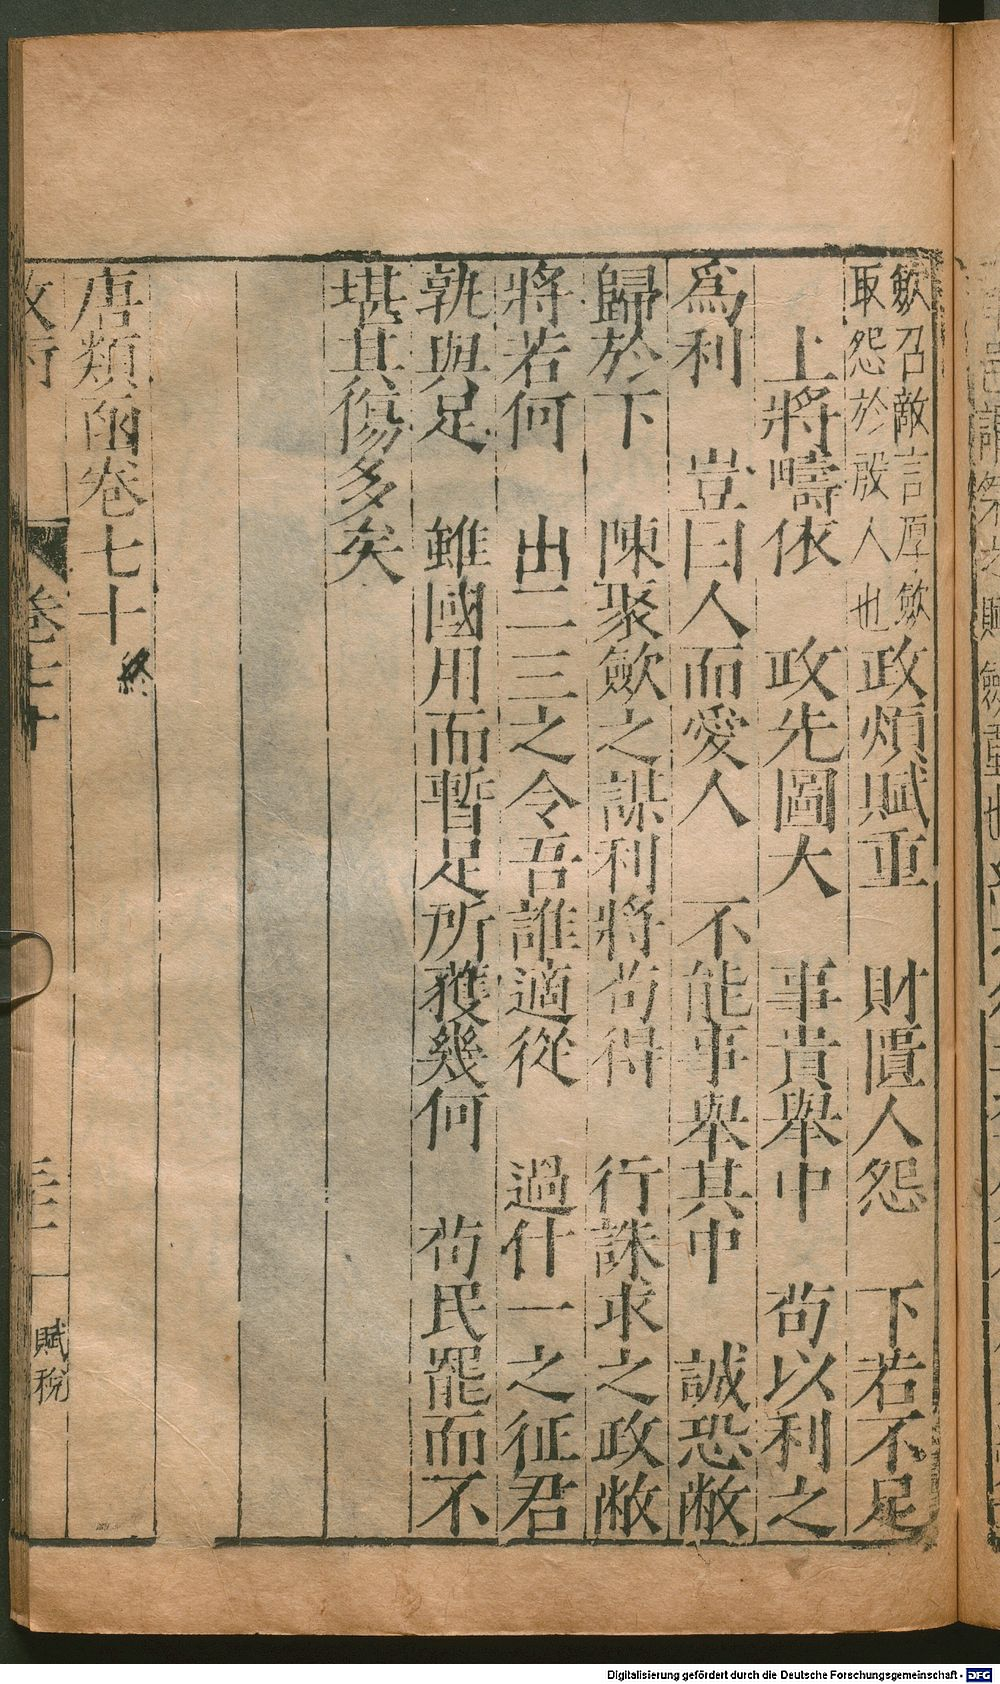 歛召敵言厚歛
取怨於殷人也
政煩賦重　財匱人怨　下若不足
上將疇依　政先圖大　事貴舉中　苟以利之
爲利　豈曰人而愛人　不能事舉其中　誠恐敝
歸於下　陳聚歛之謀利將苟得　行誅求之政敝
將若何　出二三之令吾誰適從　過什一之征君
孰與足　雖國用而暫足所獲幾何　苟民罷而不
堪其傷多矣
唐類函卷七十終
卷七十
賦稅
Digitalisierung gefördert durch die Deutsche Forschungsgemeinschaft - DFG